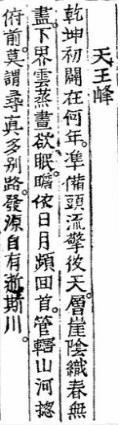 天王峰
乾坤初闢在何年。準備頭流擎彼天。層崖陰織春無
盡。下界雲蒸晝欲眠。瞻依日月頻回首。管轄山河摠
俯前。莫謂尋真多別路。發源自有逝斯川。